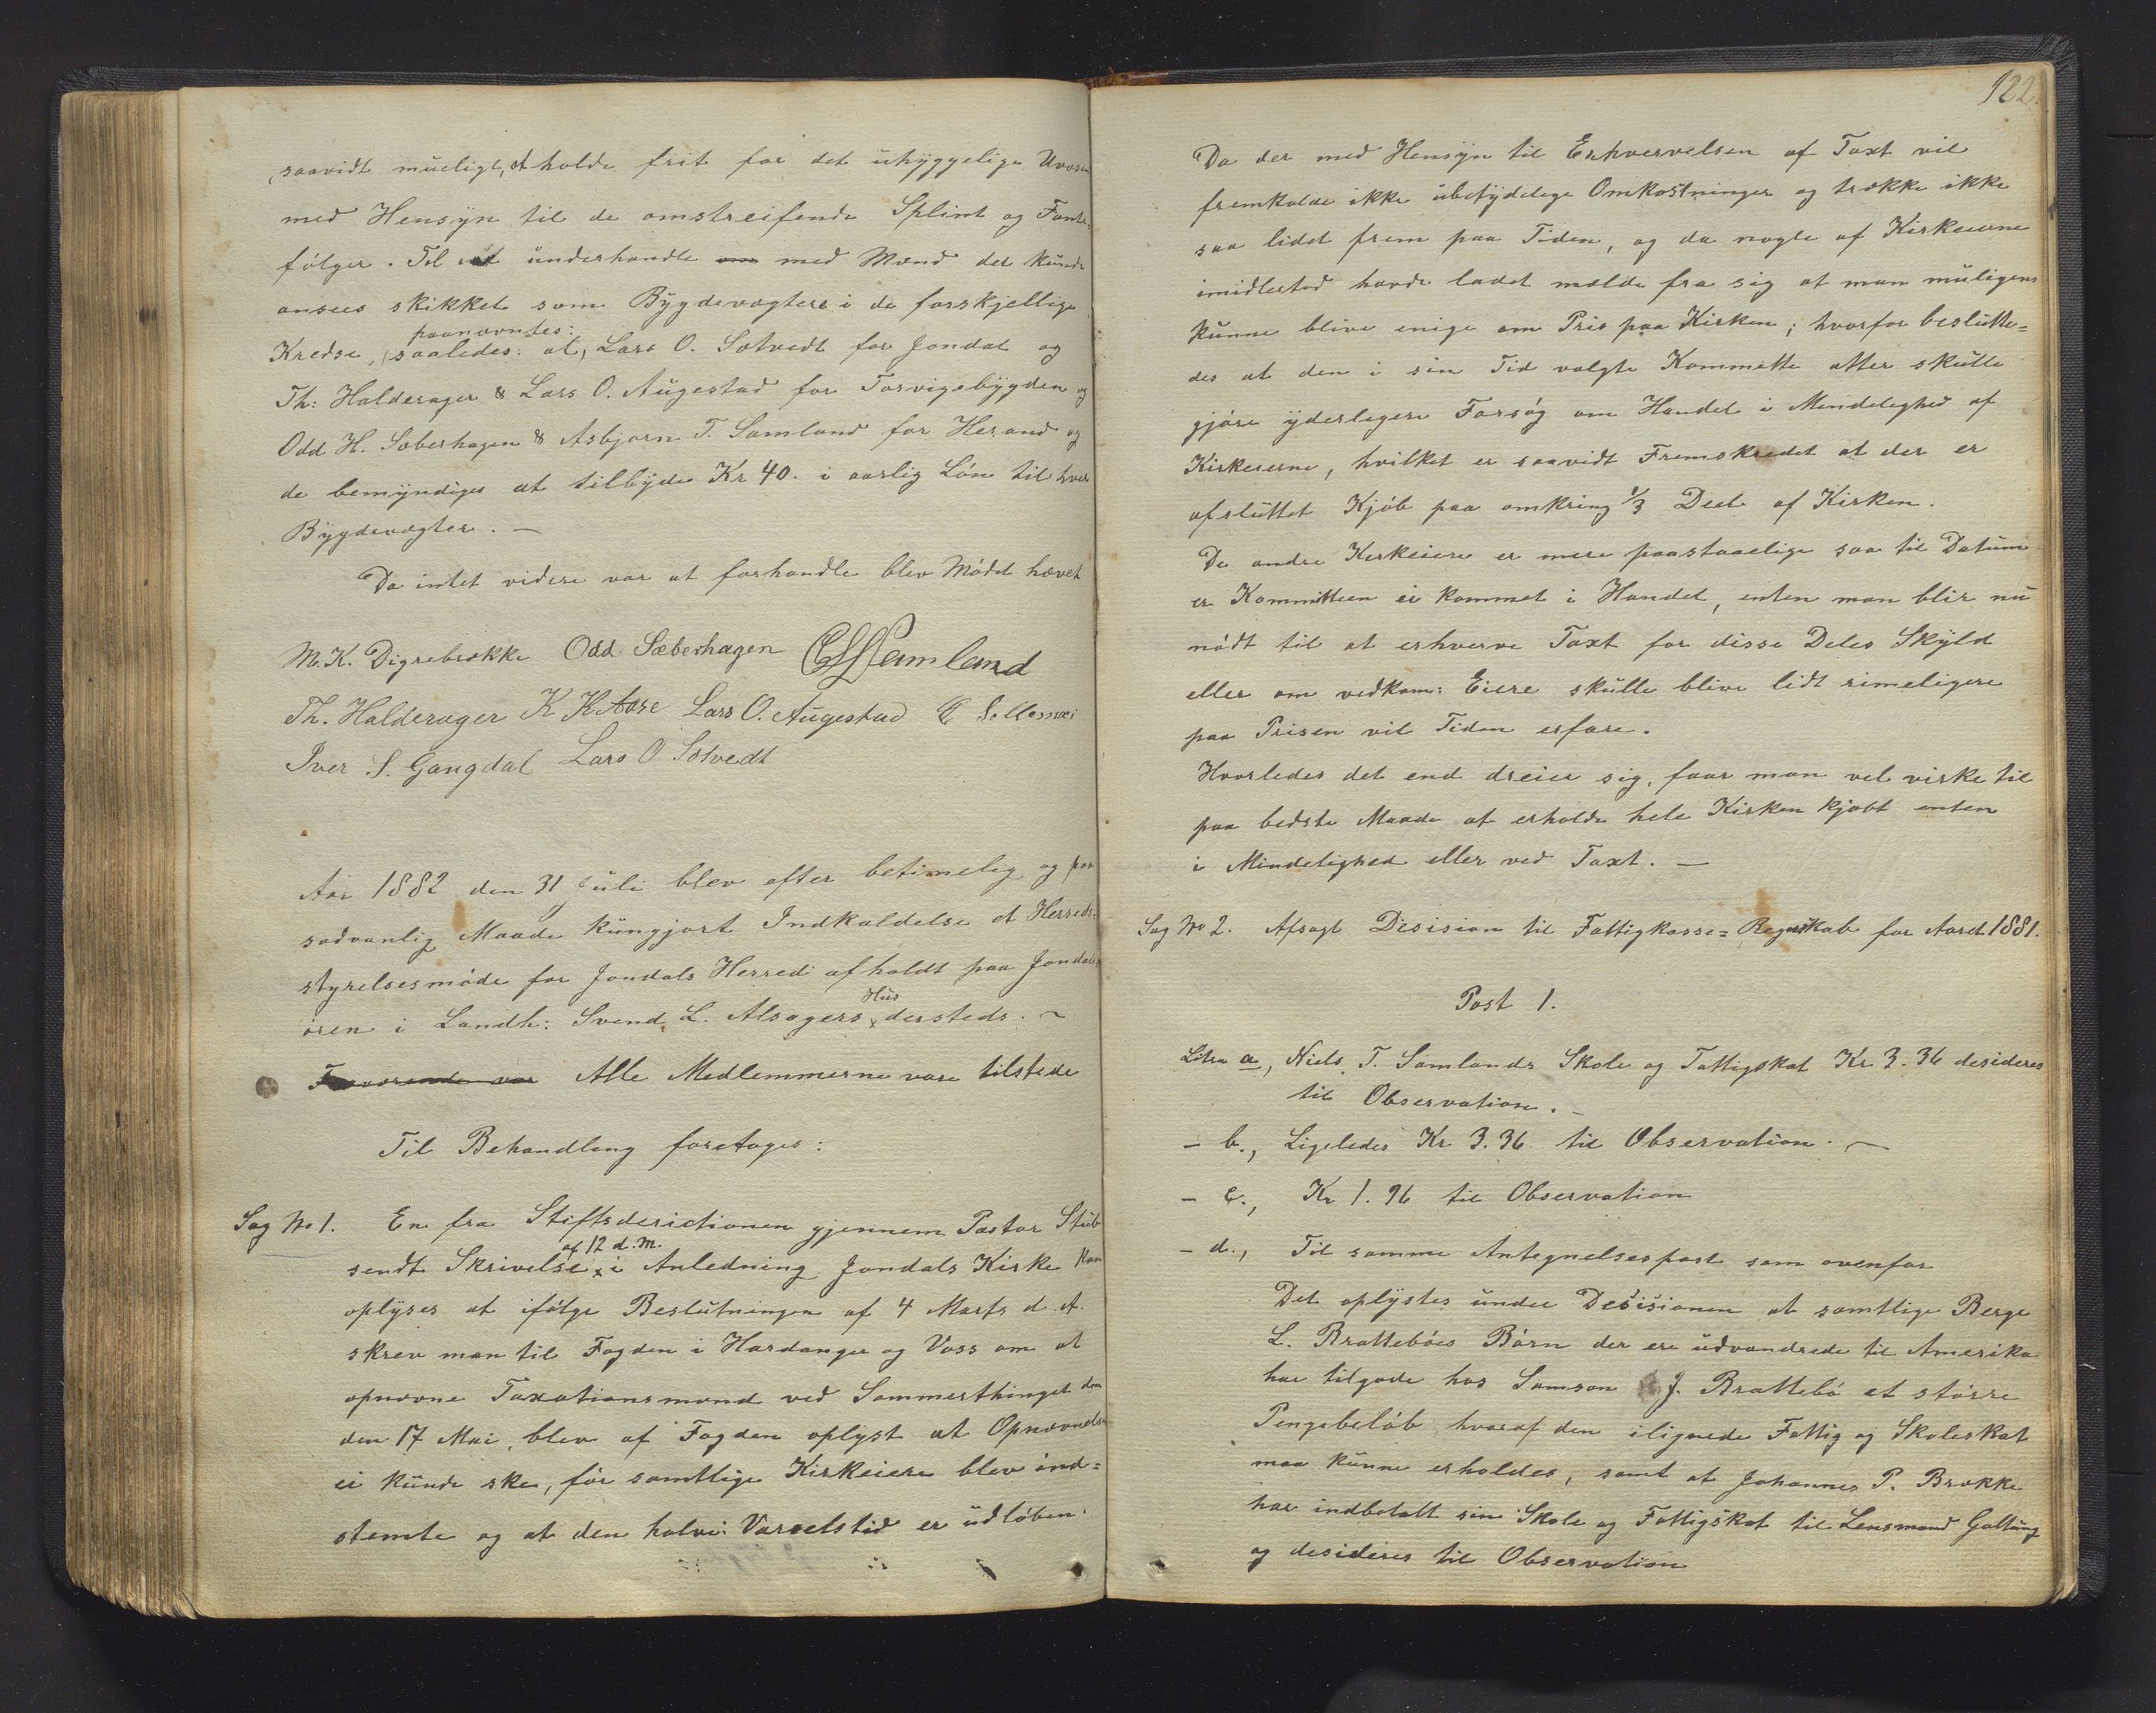 saavidt mueligt, at holde frit for det uhyggelige Uvæsen
med Hensyn til de omstreifende Splint og Fante-
følger. Til at underhandle om med Mænd der kunde
ansees skikket som Bygdevægtere i de forskjellige
paanævntes:
Kredse, saaledes: at, Lars O. Solvedt for Jondal og
Th: Halderager & Lars O. Augestad for Torvigebygden og
Odd H. Sæberhagen & Asbjørn T. Samland for Herand og
de bemyndiges at tilbyde Kr 40. i aarlig Løn til hver
Bygdevægter. —
Da intet videre var at forhandle blev Mødet hævet
M. K. Digrebrekke Odd Sæberhagen Samland
Th. Halderager K K Aase Lars O. Augestad
Iver S. Gangdal Lars O Solvedt
Aar 1882 den 31 Juli blev efter betimelig og paa
sædvanlig Maade kungjort Indkaldelse et Herreds-
styrelsesmøde for Jondals Herred afholdt paa Jondals-
Hus
øren i Landh: Svend L. Alsagers dersteds. ~
Fraværende var Alle Medlemmerne vare tilstede
Til Behandling foretoges:
Sag No 1. En fra Stiftsderictionen gjennem Pastor Stub
af 12 d. M.
sendt Skrivelse i Anledning Jondals Kirke kan
oplyses at ifølge Beslutningen af 4 Marts d. A.
skrev man til Fogden i Hardanger og Voss om at
opnævne Taxationsmænd ved Sommerthinget den
den 17 Mai, blev af Fogden oplyst at Opnævnelsen
ei kunde ske, før samtlige Kirkeiere blev ind=
stemte og at den halve: Varselstid er udløben.
122.
Da der med Hensyn til Erhvervelsen af Taxt vil
fremkalde ikke ubetydelige Omkostninger og trække ikke
saa lidet frem paa Tiden, og da nogle af Kirkeierne
imidlertid havde ladet melde fra sig at man muligens
kunne blive enige om Pris paa Kirken; hvorfor beslutte=
des at den i sin Tid valgte Kommette atter skulle
gjøre yderligere Forsøg om Handel i Mindelighed af
Kirkeierne, hvilket er saavidt Fremskredet at der er
afsluttet Kjøb paa omkring 1/3 Deel af Kirken.
De andre Kirkeiere er mere paastaaelige saa til Datum
er Kommitteen ei kommet i Handel, enten man blir nu
nødt til at erhverve Taxt for disse Deles Skyld
eller om vedkom: Eiere skulle blive lidt rimeligere
paa Prisen vil Tiden erfare.
Hvorledes det end dreier sig, faar man vel virke til
paa bedste Maade at erholde hele Kirken kjøbt enten
i Mindelighed eller ved Taxt. —
Sag No 2. Afsagt Desision til Fattigkasse=Regnskab for Aaret 1881.
Post 1.
Litra a, Niels T. Samlands Skole og Fattigskat Kr 3.36 desideres
til Observation. —
— b., Ligeledes Kr 3.36 til Observation. —
— c., Kr 1.96 til Observation
— d., Til samme Antegnelsespost som ovenfor
Det oplystes under Desisionen at samtlige Berge
L. Brattebøes Børn der ere udvandrede til Amerika
har tilgode hos Samson J. Brattebø et større
Pengebeløb hvoraf den ilignede Fattig og Skoleskat
maa kunne erholdes, samt at Johannes P. Brække
har indbetalt sin Skole og Fattigskat til Lensmand Galtung
og desideres til Observation